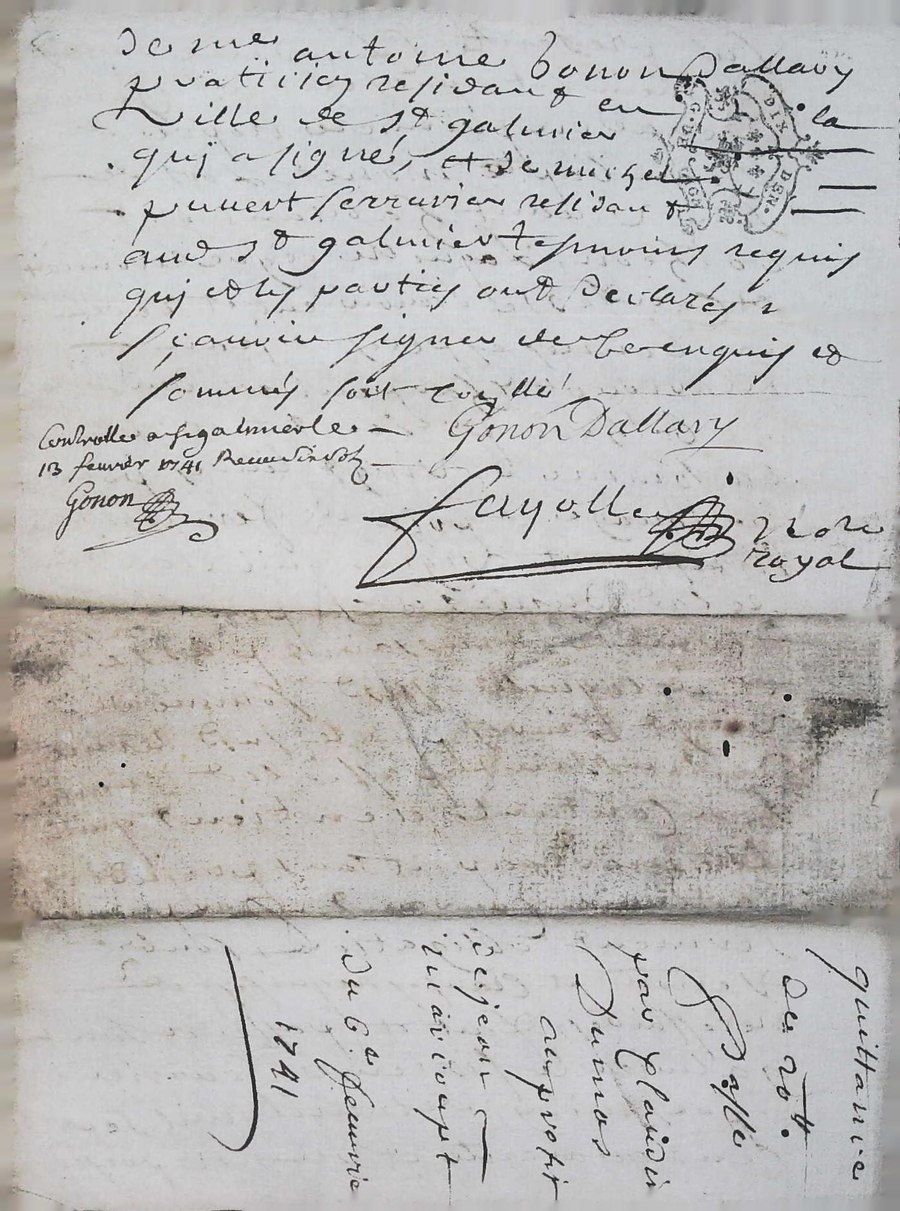 de me antoine Gonon Dallary
praticien residant en la
Ville de st galmier
qui a signé, et de michel
serrurier residant
aud st galmier tesmoins requis
qui et les parties ont declarés
sçavoir signer de ce enquis et
sommés
Controllé a st galmier le
13 fevrier 1741 Receu
Gonon
Gonon Dallary
fayolle Nore
royal
G. DE
DIX DEN.
quittance
de 20tt.
passée
par Claude
Dumas
au profit
de jean
du 6e feuvrie
1741